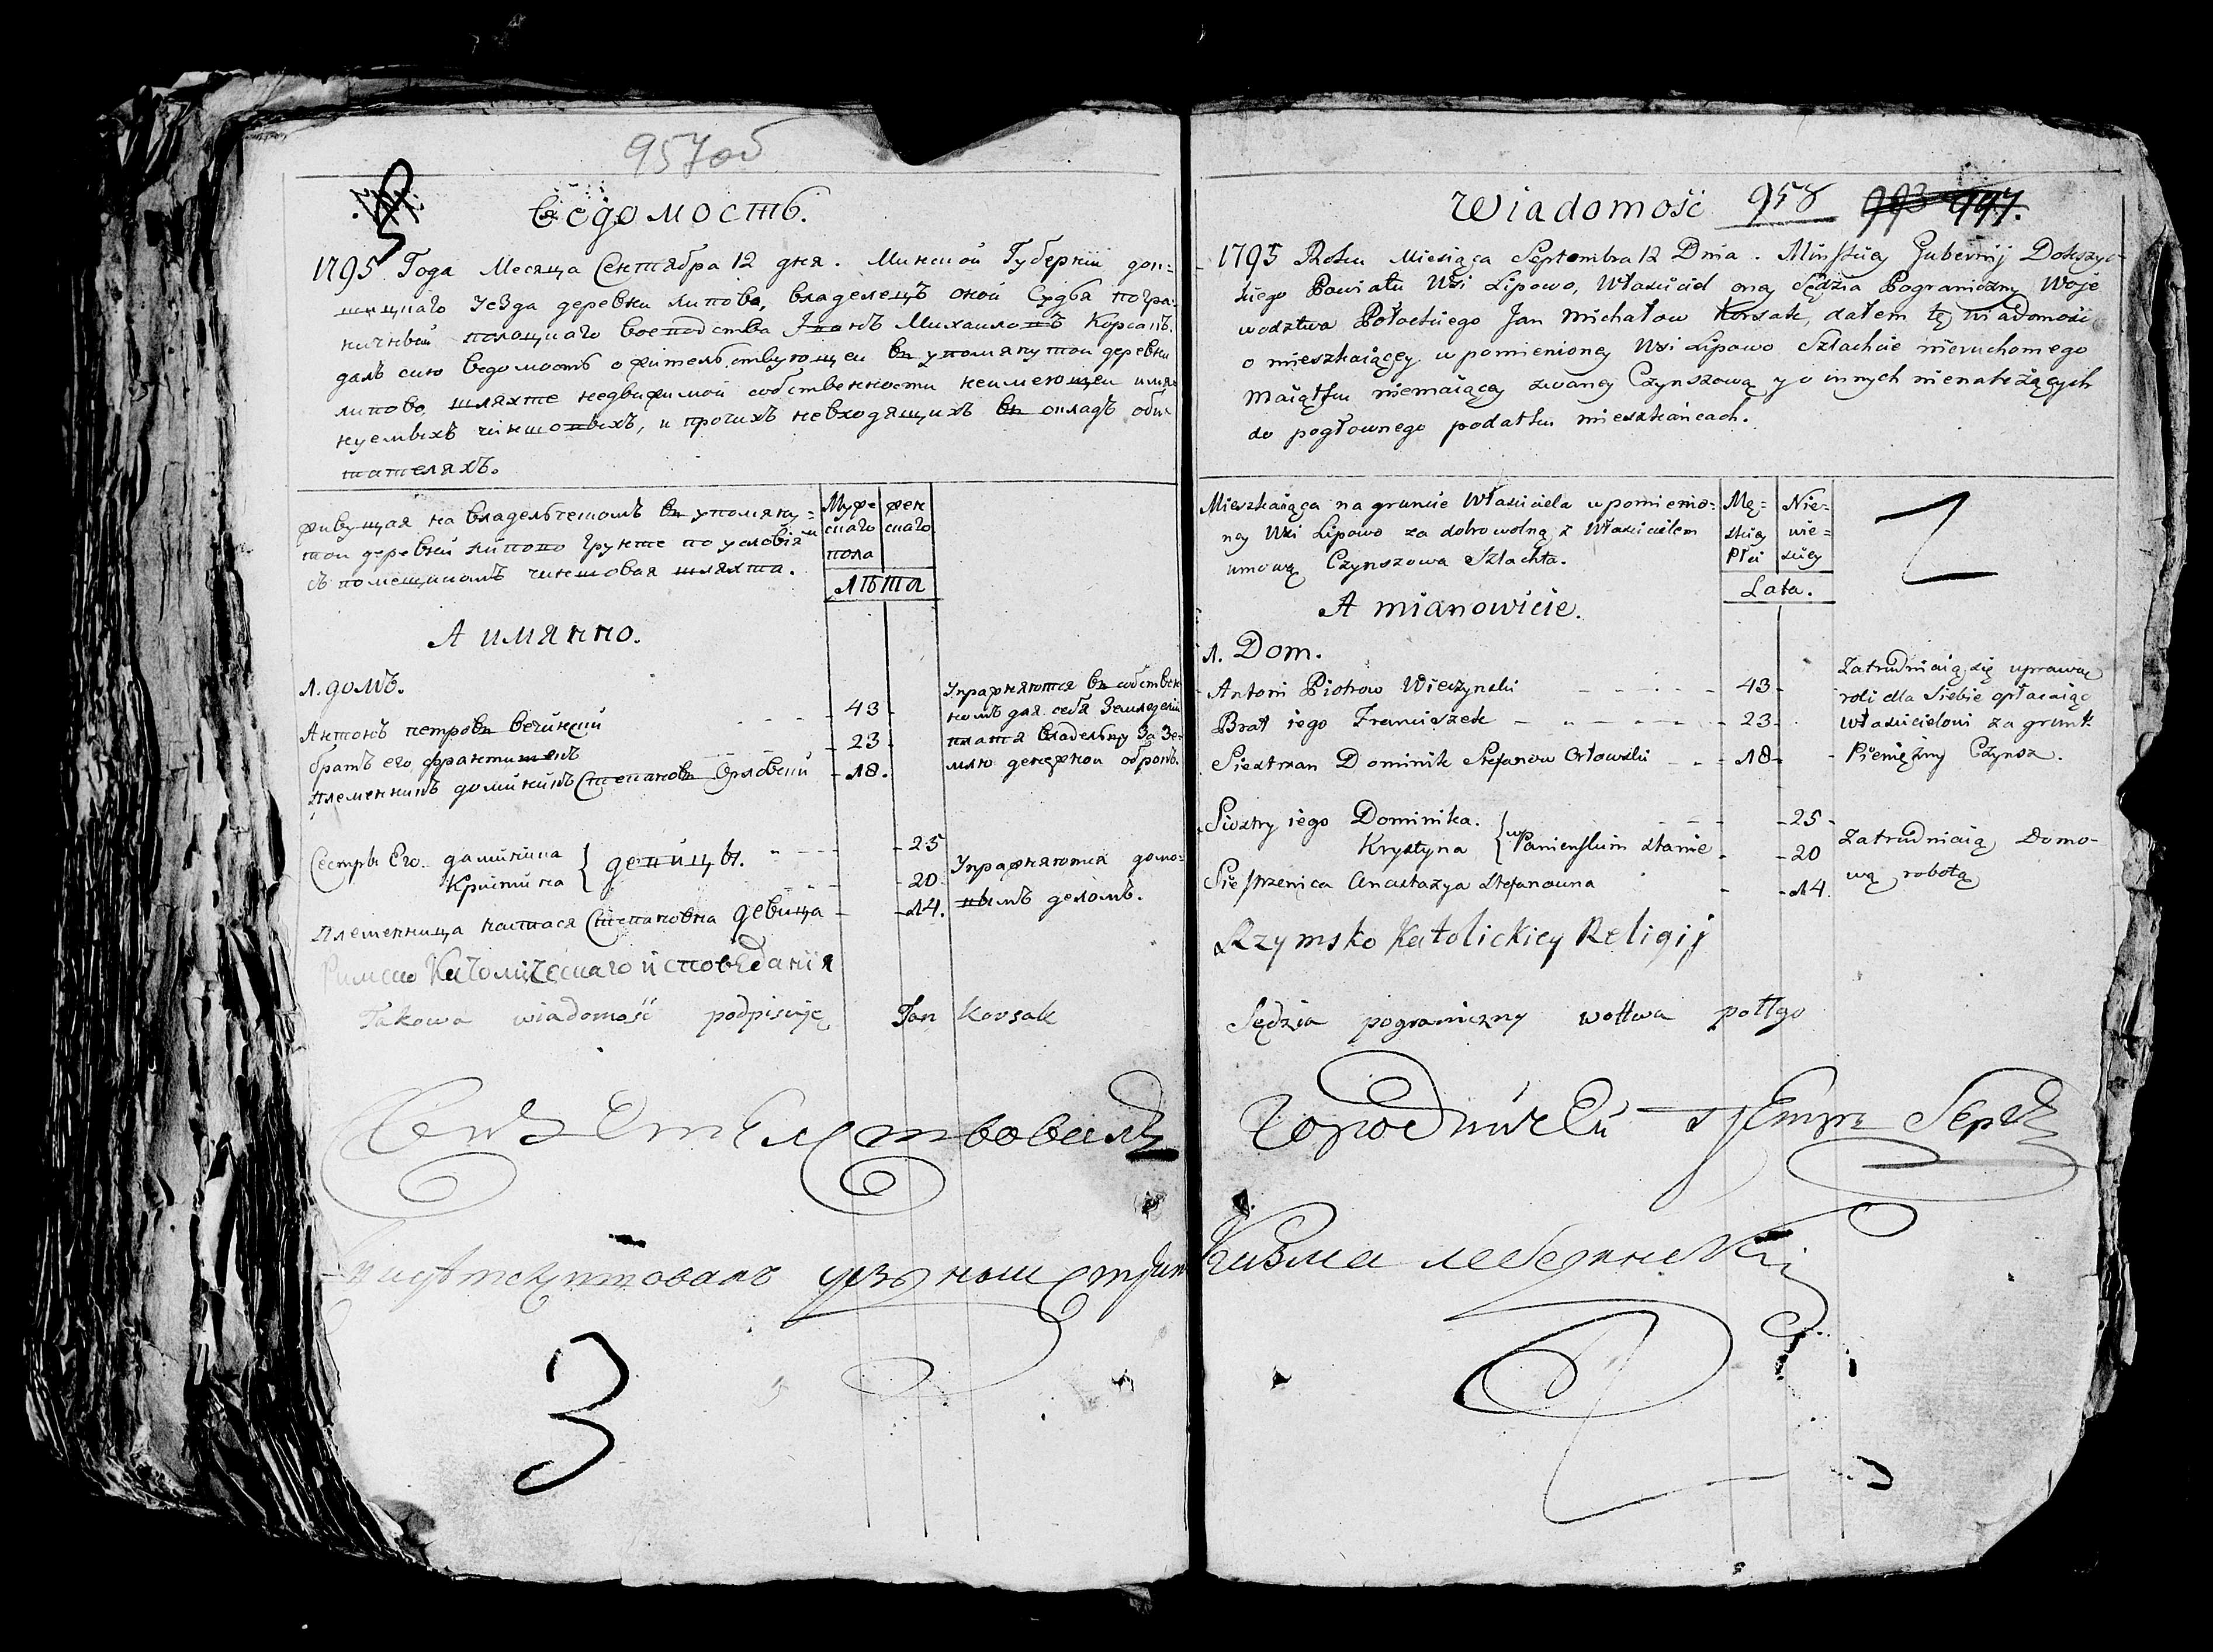 957об
Ведомость.
1795 Года Месяца Сентября 12 дня. Минской Губернии док=
шицкаго уезда деревни Липово, владелецъ оной Судья погра=
ничный полоцкаго воеводства Янъ Михайловъ Корсакъ.
далъ сию ведомость о жительствующеи въ упомянутои деревни
липово, шляхте недвижимой собственности неимеющеи имя=
нуемыхъ чиншовыхъ, и прочихъ невходящихъ въ окладъ оби=
тателяхъ.
живущая на владельческомъ въ упомяну=
той деревни липово грунте по условія
съ помещикомъ чиншовая шляхта.
Муже
скаго
пола
жен
скаго
лѣта
А имянно.
1. домъ.
Антонъ петровъ вечинский - 43
братъ его францишекъ - 23
Племенникъ доминикъ Степановъ Орловский - 18.
Упражняются въ собствен
номъ для себя Земледелии
платя владельцу За Зе=
млю денежной оброкъ.
Сестры Его доминика } девицы. - 25
Кристина - 20
Племенница настася Степановна девица - 14.
Упражняются домо=
вымъ деломъ.
Римско Католическаго исповеданія
Takowa wiadomość podpisuję Jan Korsak
Свидетельствовалъ
3
Wiadomość 958 993 997.
1795 Roku Miesiąca Septembra 12 Dnia. Minskiey Gubernij Dokszyc=
kiego Powiatu Wsi Lipowo, Właściciel oney Sędzia Pograniczny Woje
wodztwa Połockiego Jan Michałow Korsak, dałem tę wiadomość
o mieszkaiącey w pomienioney Wsi Lipowo Szlachcie nieruchomego
Maiątku niemaiącey zwaney Czynszową y o innych nienależących
do pogłownego podatku mieszkańcach.
Mieszkaiąca na gruncie Właściciela w pomienio=
ney Wsi Lipowo za dobrowolną z Właścicielem
umową Czynszowa Szlachta.
Mę=
skiey
Płci
Nie=
wie=
sciey
Lata.
A mianowicie.
1. Dom.
Antoni Piotrow Wieczynski - 43
Brat iego Franciszek - 23
Siestrzan Dominik Stefanow Orłowski - 18
Zatrudniaią się uprawą
roli dla Siebie opłacaiąc
Właścicielowi za grunt
Pieniężny Czynsz.
Siostry iego Dominika. - 25
Krystyna { w Panienskim stanie - 20
Siestrzenica Anastazya Stefanowna - 14.
Zatrudniaią Domo=
wą robotą
Rzymsko Katolickiey Religij
Sędzia pograniczny wottwa połłgo
Городничей